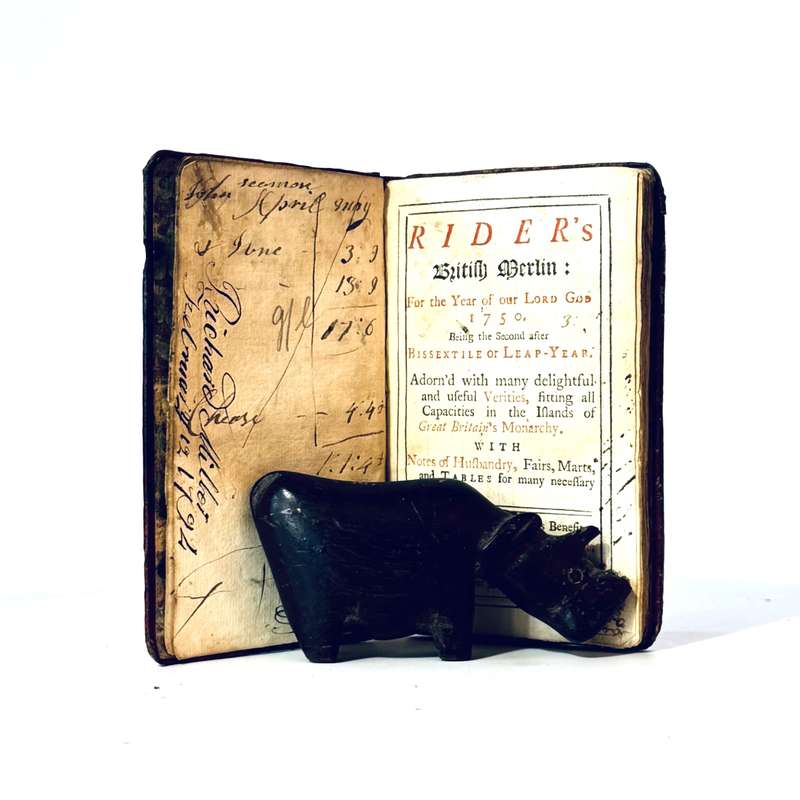 John seemor
April
& June - 3:9
13:9
17:6
4:4½
1:1:4½
Richard Millet
february 12 1792
RIDER's
British Merlin:
For the Year of our LORD GOD
1750. 3:
Being the Second after
BISSEXTILE or LEAP-YEAR.
Adorn'd with many delightful
and useful Verities, fitting all
Capacities in the Iſlands of
Great Britain's Monarchy.
WITH
Notes of Huſbandry, Fairs, Marts,
and TABLES for many neceſſary
Benefit